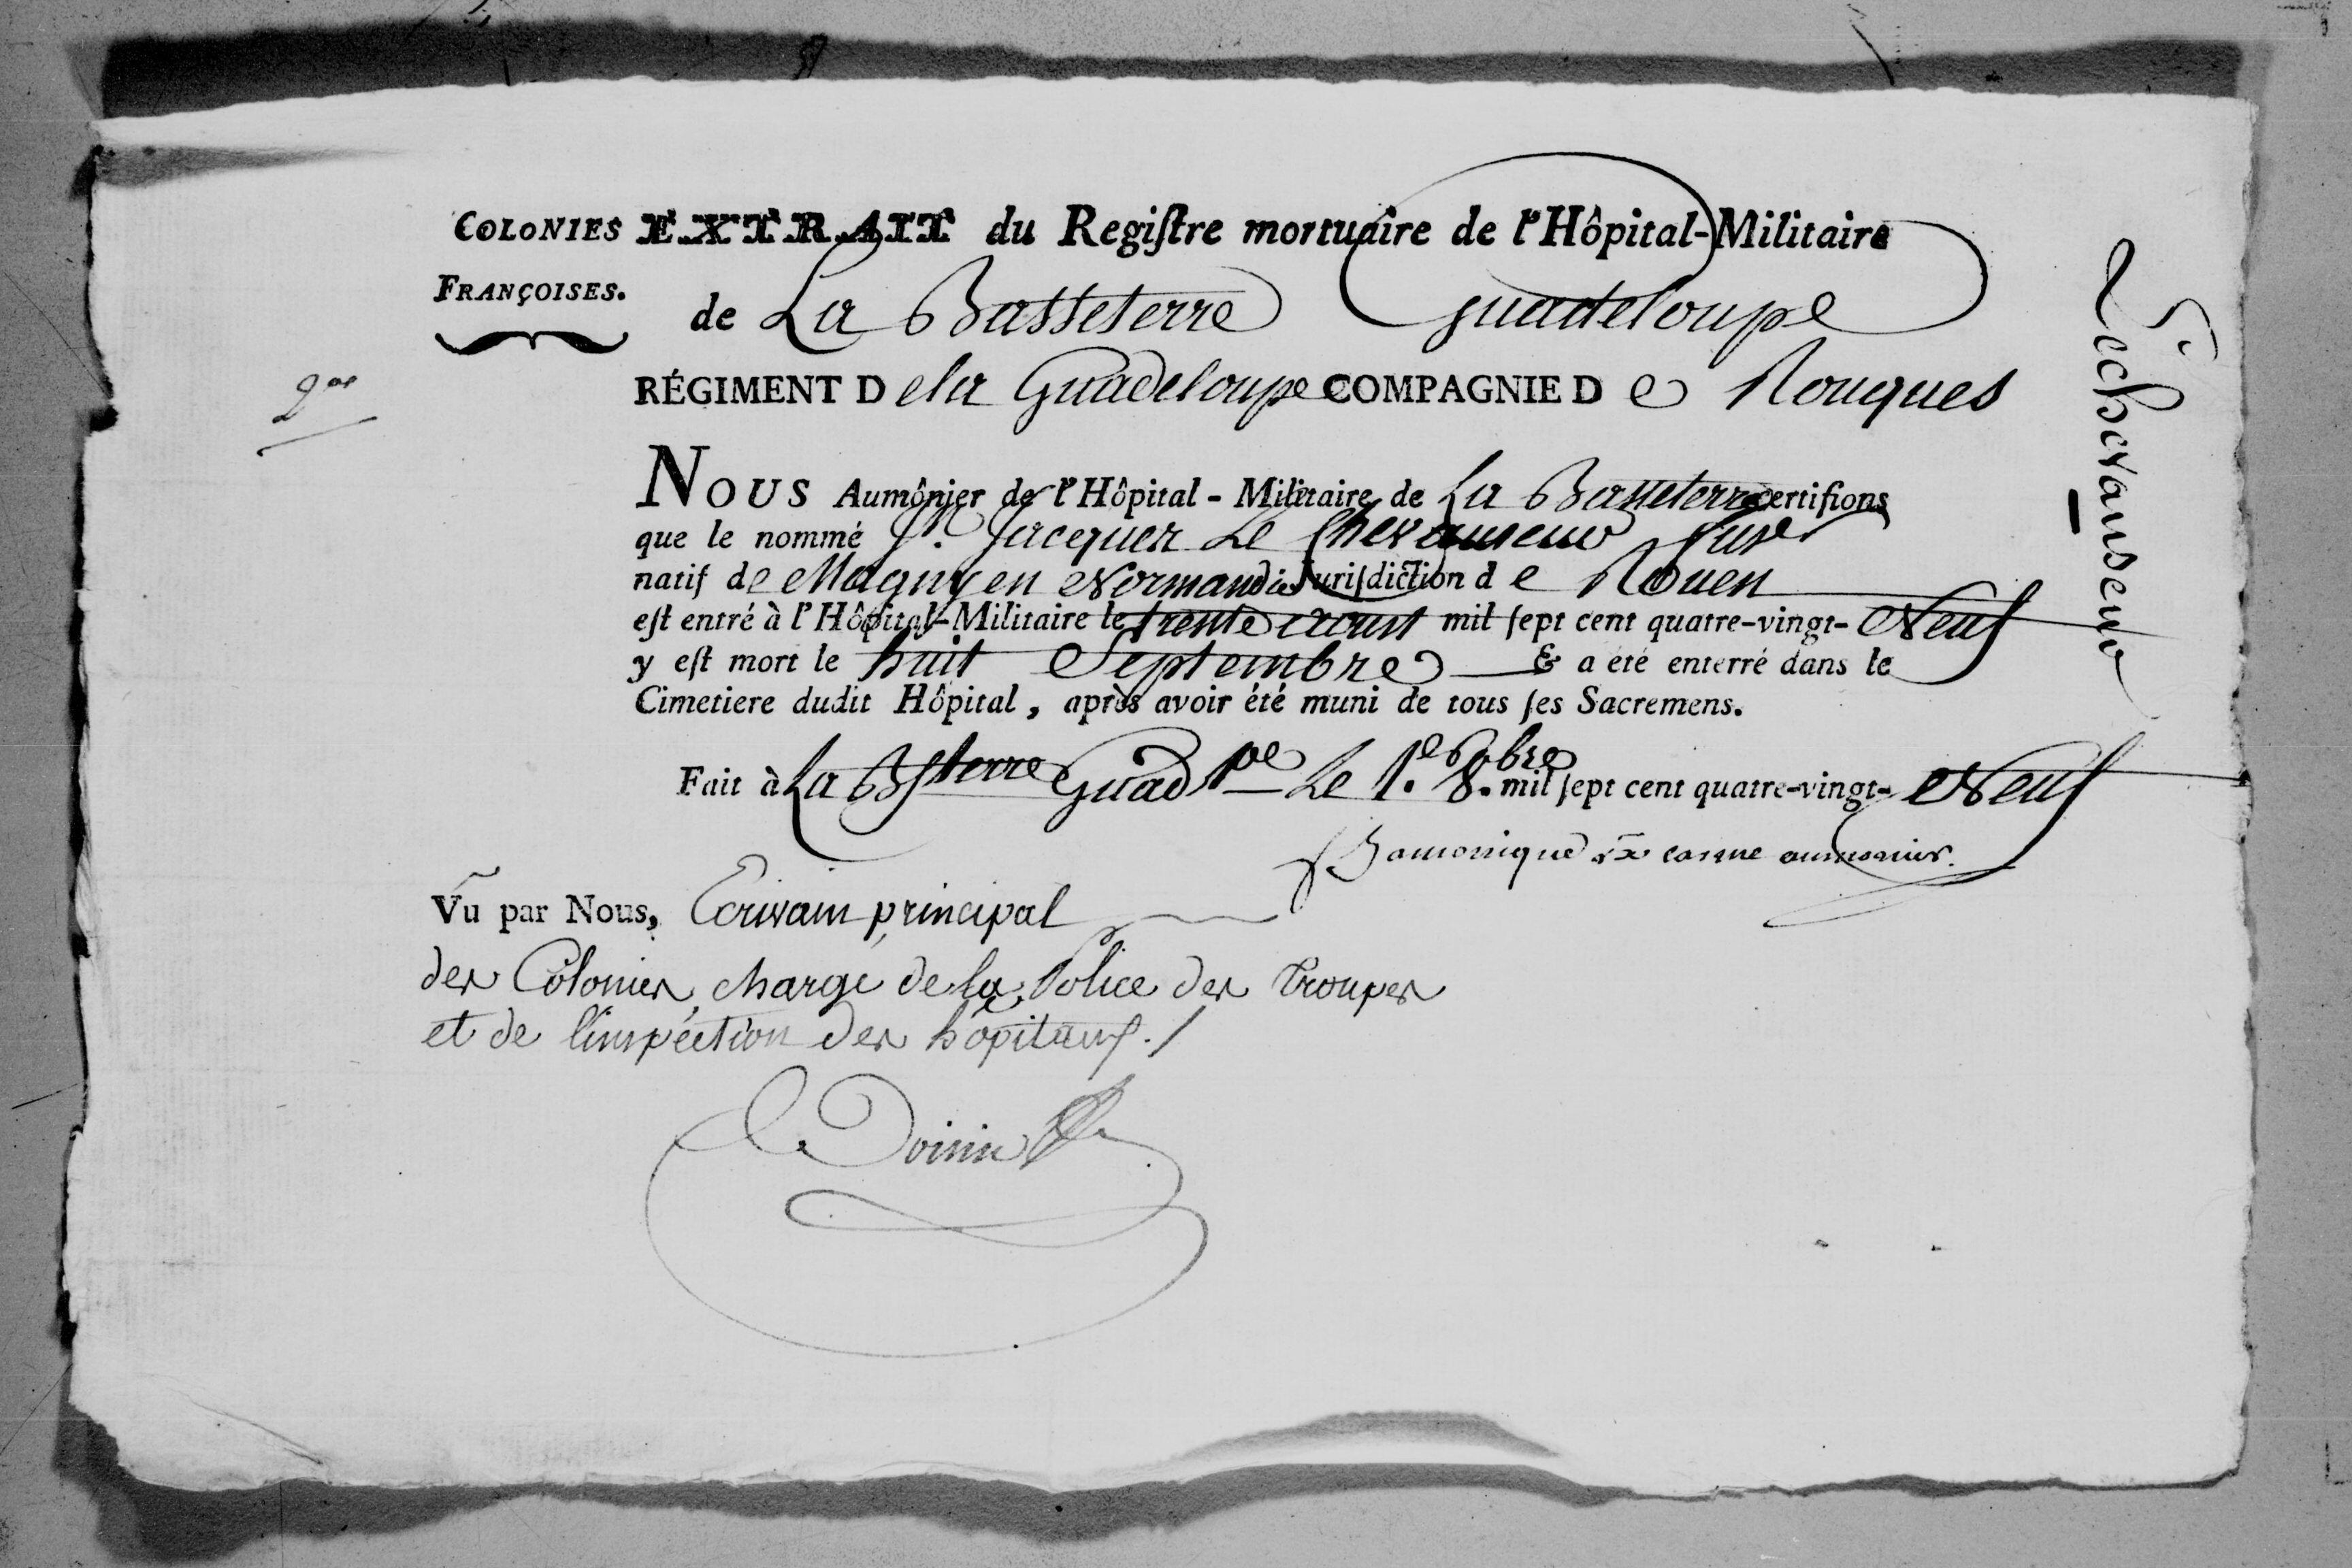 COLONIES EXTRAIT du Regiſtre mortuaire de l'Hôpital-Militaire
FRANÇOISES. de La Basseterre Guadeloupe
RÉGIMENT De la Guadeloupe COMPAGNIE De Rouques
NOUS Aumônier de l'Hôpital-Militaire de La Basseterre certifions
que le nommé Jacques Le Chevanseur
natif de Magny en Normandie Juriſdiction de Rouen
eſt entré à l'Hôpital-Militaire le trente aoust mil ſept cent quatre-vingt-Neuf
y eſt mort le huit Septembre & a été enterré dans le
Cimetiere dudit Hôpital, après avoir été muni de tous ſes Sacremens.
Fait à La Bsterre Guadpe Le 1er 8bre mil ſept cent quatre-vingt-Neuf
carme aumonier.
Vu par Nous, Ecrivain principal
des Colonies, chargé de la Police des troupes
et de l'inspéction des hôpitaux./
Lechevanseur